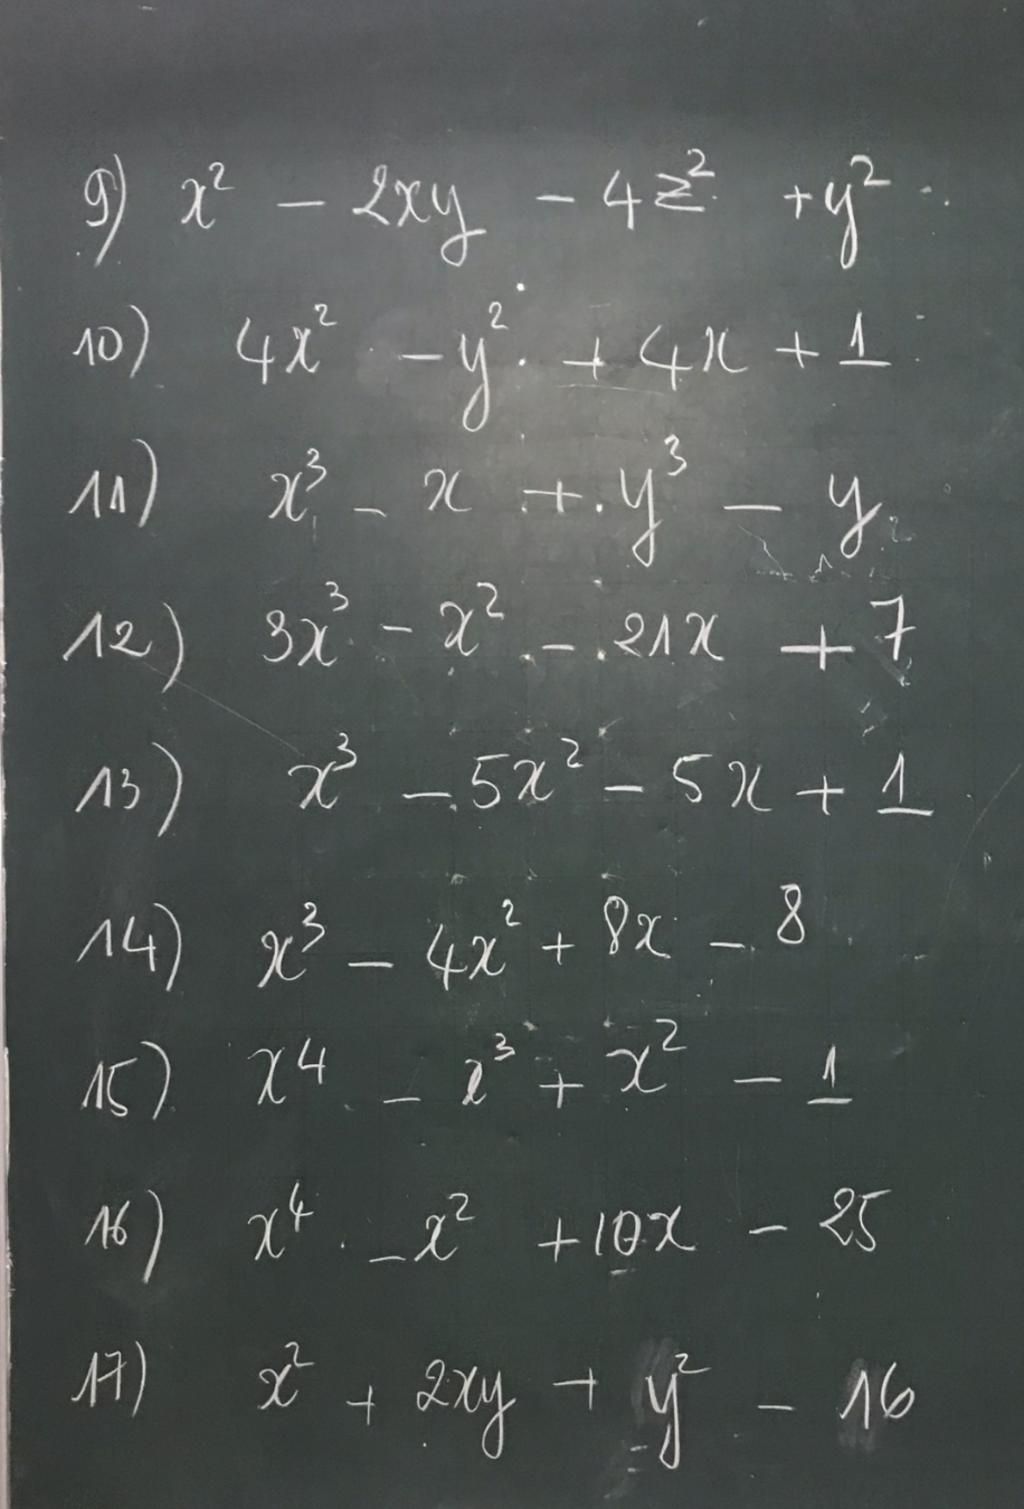 9) x² - 2xy - 4z² + y²
10) 4x² - y² + 4x + 1
11) x³ - x + y³ - y
12) 3x³ - x² - 21x + 7
13) x³ - 5x² - 5x + 1
14) x³ - 4x² + 8x - 8
15) x⁴ - x³ + x² - 1
16) x⁴ - x² + 10x - 25
17) x² + 2xy + y² - 16